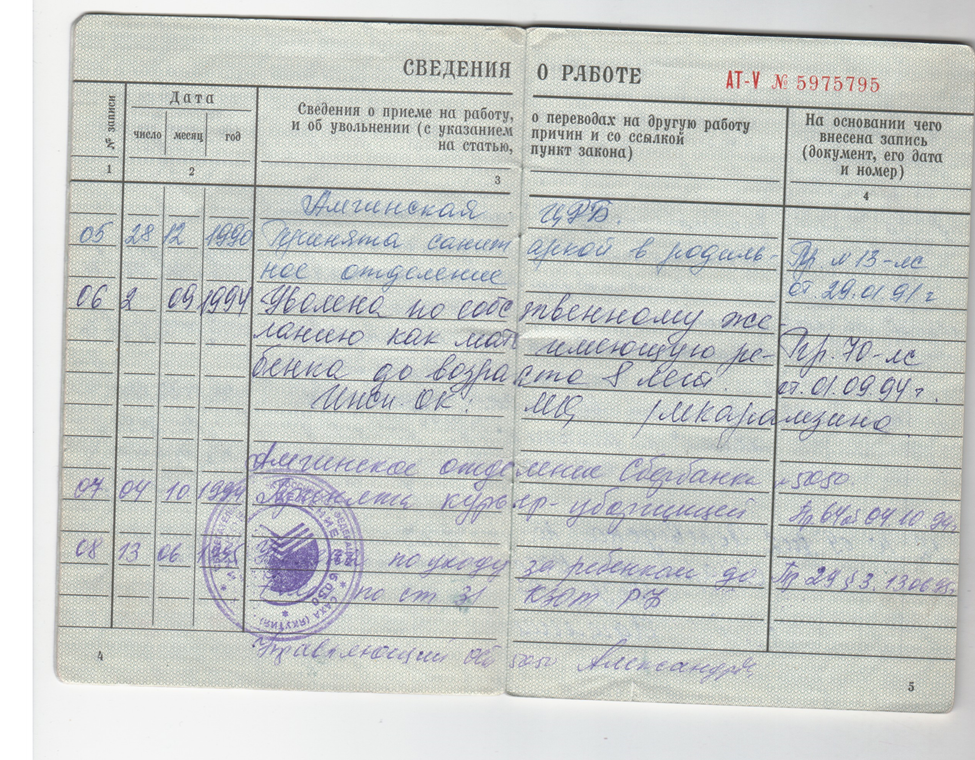 СВЕДЕНИЯ О РАБОТЕ
АТ-V № 5975795
№ записи
Дата
число месяц год
Сведения о приеме на работу, о переводах на другую работу
и об увольнении (с указанием причин и со ссылкой
на статью, пункт закона)
На основании чего
внесена запись
(документ, его дата
и номер)
1 2 3 4
Амгинская ЦРБ.
05 28 12 1990 Принята санитаркой в родиль- Пр №13-лс
ное отделение от 29.01.91г
06 2 09 1994 Уволена по собственному же
ланию как мать имеющую ре- Пр. 70-лс
бенка до возраста 8 лет. от. 01.09.94г.
Инсп. ОК.
Амгинское отделение Сбербанка №5050
07 04 10 1994 Принята курьер-уборщицей Пр 04 10 94г
08 13 06 1995 по уходу за ребенком до Пр 29 §3. 130695г
по ст 31 КЗОТ РФ
САХА (ЯКУТИЯ)
Управляющий 5050
4
5